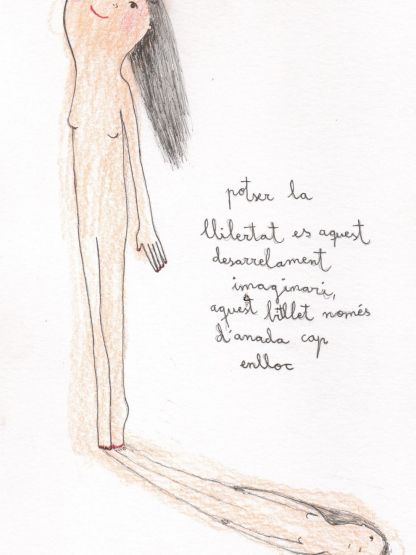 potser la
llibertat es aquest
desarrelament
imaginari,
aquest bitllet només
d'anada cap
enlloc